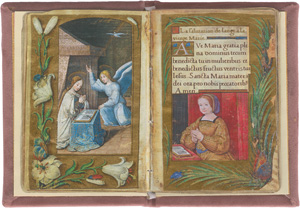 La salutation de lange a la
vierge Marie.
AVe Maria gratia ple
na dominus tecum
benedicta tu in mulieribus et
benedictus fructus ventris tui
Iesus. Sancta Maria mater
dei ora pro nobis peccatoribus
Amen.